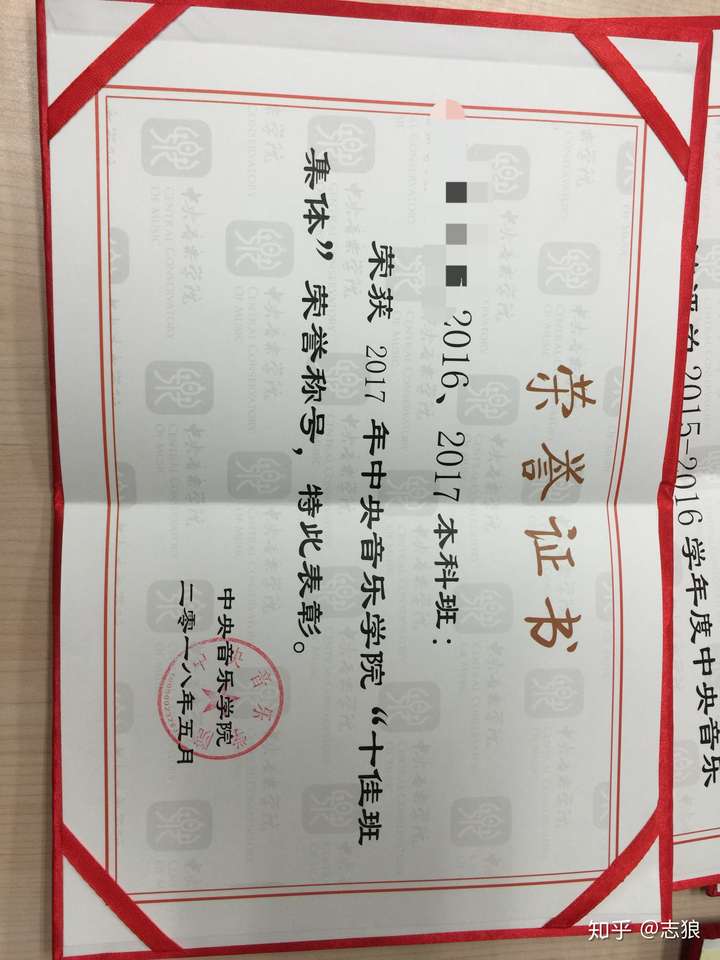 荣誉证书
2016、2017本科班：
荣获 2017 年中央音乐学院 “十佳班
集体” 荣誉称号，特此表彰。
中央音乐学院
二零一八年五月
2015-2016 学年度中央音乐
中央音乐学院
CENTRAL CONSERVATORY
OF MUSIC
知乎 @志狼